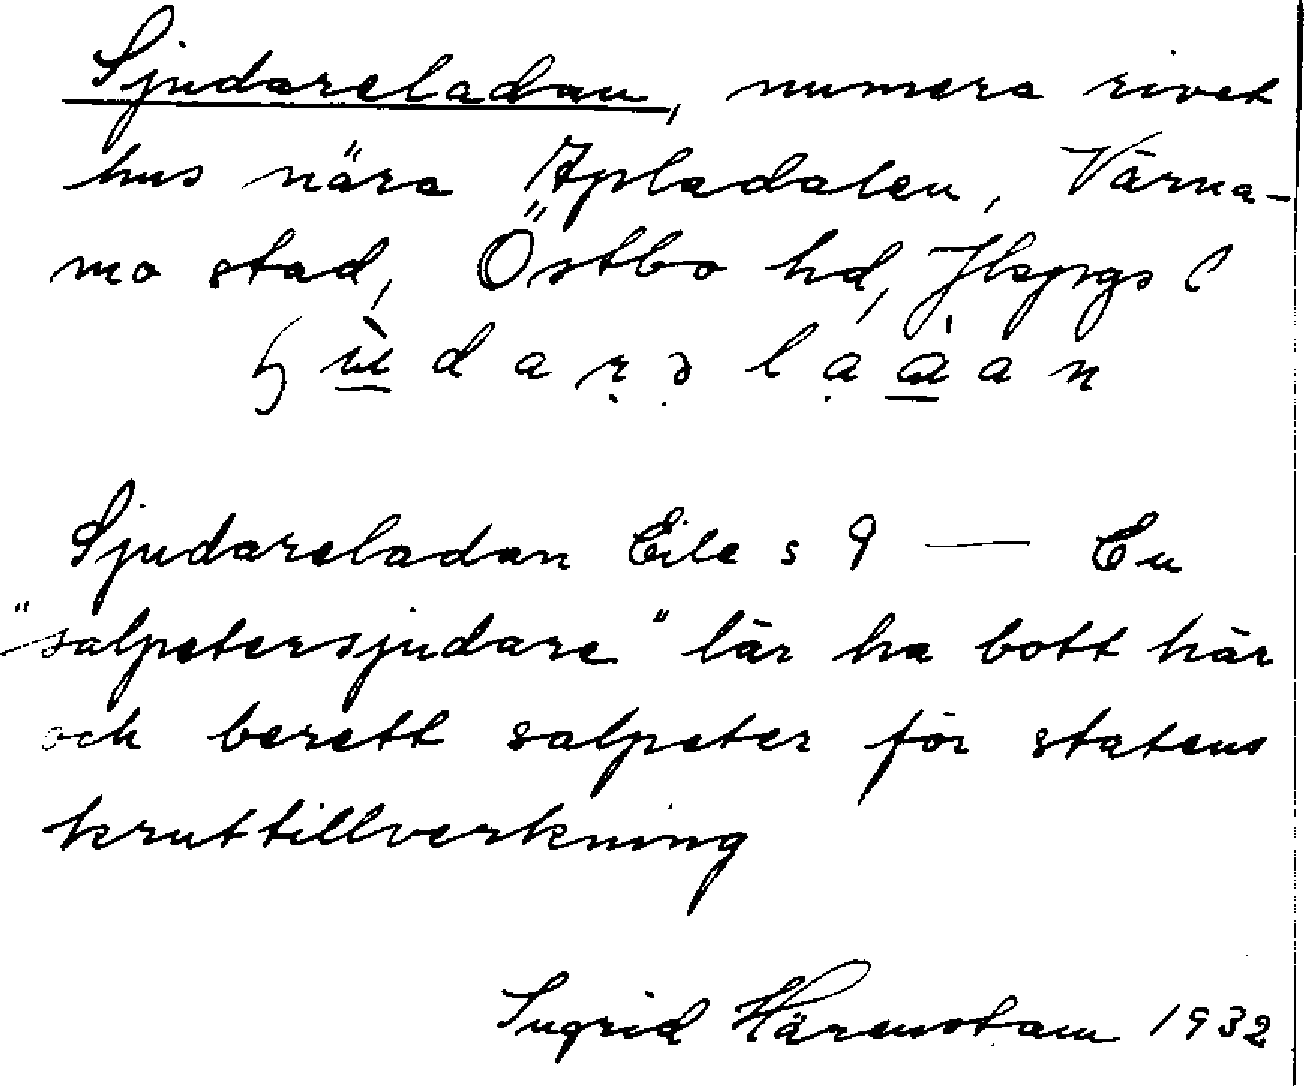 Sjudareladan, numera rivet
hus nära Apladalen, Värna-
mo stad, Östbo hd, Jkpgs l
Sjudareladan Eile s 9 — En
"salpetersjudare" lär ha bott här
och berett salpeter för statens
kruttillverkning
Ingrid Härenstam 1932